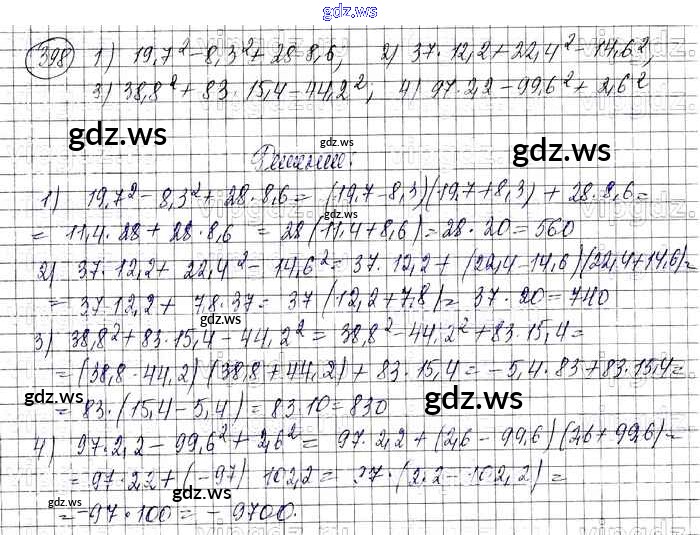 gdz.ws
398 1) 19,7² - 8,3² + 28·8,6; 2) 37·12,2 + 22,4² - 14,6²;
3) 38,8² + 83·15,4 - 44,2²; 4) 97·2,2 - 99,6² + 2,6²
gdz.ws gdz.ws
1) 19,7² - 8,3² + 28·8,6 = (19,7 - 8,3)(19,7 + 8,3) + 28·8,6 =
= 11,4·28 + 28·8,6 = 28(11,4 + 8,6) = 28·20 = 560
gdz.ws
2) 37·12,2 + 22,4² - 14,6² = 37·12,2 + (22,4 - 14,6)(22,4 + 14,6) =
= 37·12,2 + 7,8·37 = 37(12,2 + 7,8) = 37·20 = 740
gdz.ws
3) 38,8² + 83·15,4 - 44,2² = 38,8² - 44,2² + 83·15,4 =
= (38,8 - 44,2)(38,8 + 44,2) + 83·15,4 = -5,4·83 + 83·15,4 =
gdz.ws gdz.ws
= 83·(15,4 - 5,4) = 83·10 = 830
4) 97·2,2 - 99,6² + 2,6² = 97·2,2 + (2,6 - 99,6)(2,6 + 99,6) =
gdz.ws
= 97·2,2 + (-97) 102,2 = 97·(2,2 - 102,2) =
gdz.ws
= -97·100 = -9700.